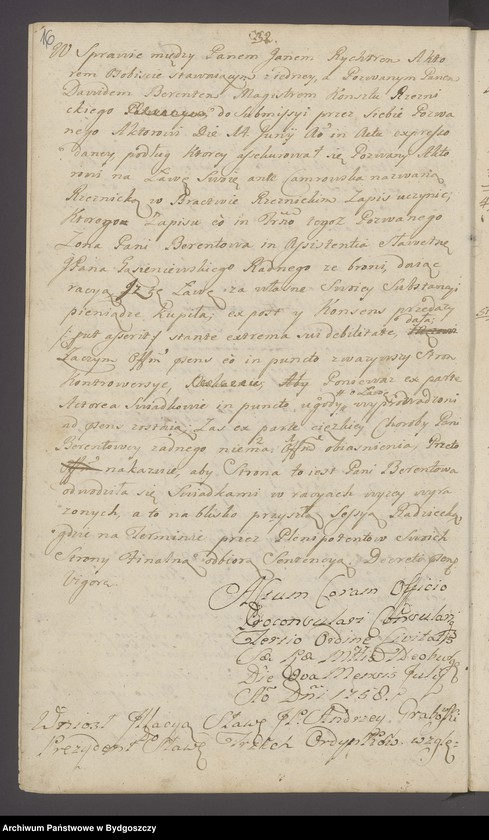 16
32.
W Sprawie między Panem Janem Rychtrem Akto
rem Bobiscie stawaiącym z iedney, a Pozwanym Panem
Dawidem Berentem Magistrem Konsztu Rzeźni
ckiego do Submissyi przez Siebie Pozwa
nego Aktorowi Die 14 Junij Ao in Acta expresso
daney, podług ktorey assekurował się Pozwany Akto
rowi na Ławę Swoię ante nazwaną
Rzeznicką w Bractwie Rzeznickim Zapis uczynić,
Ktorego Zapisu eo in tegoż Pozwanego
Zona Pani Berentowa in Assistentia Sławetnego
JPana Gąsieniewskiego Radnego ze broni, daiąc
racyą, Iż tę Ławę za własne Swoiey Substancyi
pieniądze kupiła; ex post y Konsens przedaży
put asserit stante extrema sui debilitate, dała;
Zaczym Offm psens eo in puncto zwazywszy Stron
Kontrowersye, Aby Ponieważ ex parte
Actorea Swiadkowie in puncto ugody o Ławę wyprowadzeni
ad psens zostaią, Zaś ex parte cięzkiey Choroby Pani
Berentowey zadnego niema Offm obiasnienia, Przeto
nakazuie, aby Strona to iest Pani Berentowa
odwodziła się Swiadkami w racyach wyzey wyra
zonych, a to na blisko przyszłą Sessyą Radziecką
gdzie na Terminie przez Plenipotentow Swoich
Strony Finalną odbiorą Sentencyą, Decreto psens
vigore.
Actum Coram Officio
Proconsulari Consulari
Tertio Ordine Civitatis
Sae Rae Mttis Bydgostiae
Die 2da Mensis Julij
Ao Dni 1758.
Wniosł Jllacyą Sławę JP. Andrzey Gralowski
Prezydent Sławę Trzech Ordynkow wzglę-
Archiwum Państwowe w Bydgoszczy